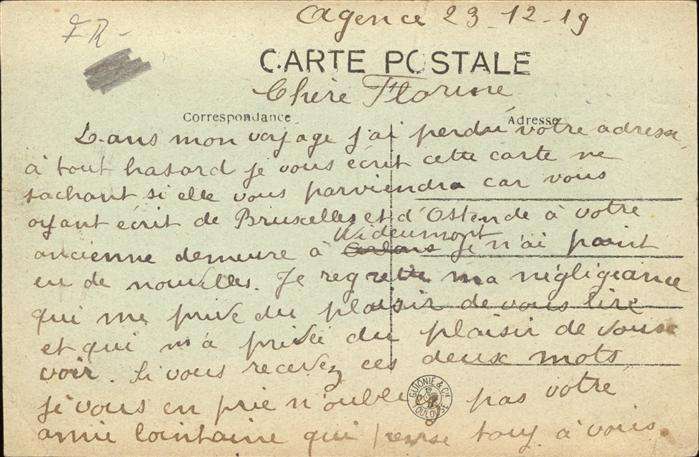 FR-
Agence 23-12-19
CARTE POSTALE
Chère Florine
Correspondance
Adresse
Dans mon voyage j'ai perdu votre adresse,
à tout hasard je vous écrit cette carte ne
sachant si elle vous parviendra car vous
ayant écrit de Bruxelles et d'Ostende à votre
Wideumont
ancienne demeure à je n'ai point
eu de nouvelles. Je regrette ma négligeance
qui me prive du plaisir de vous lire
et qui m'a privée du plaisir de vous
voir. Si vous recevez ces deux mots,
je vous en prie n'oubliez pas votre
amie lointaine qui pense à vous.
GUIONIE & Cie
TOULOUSE